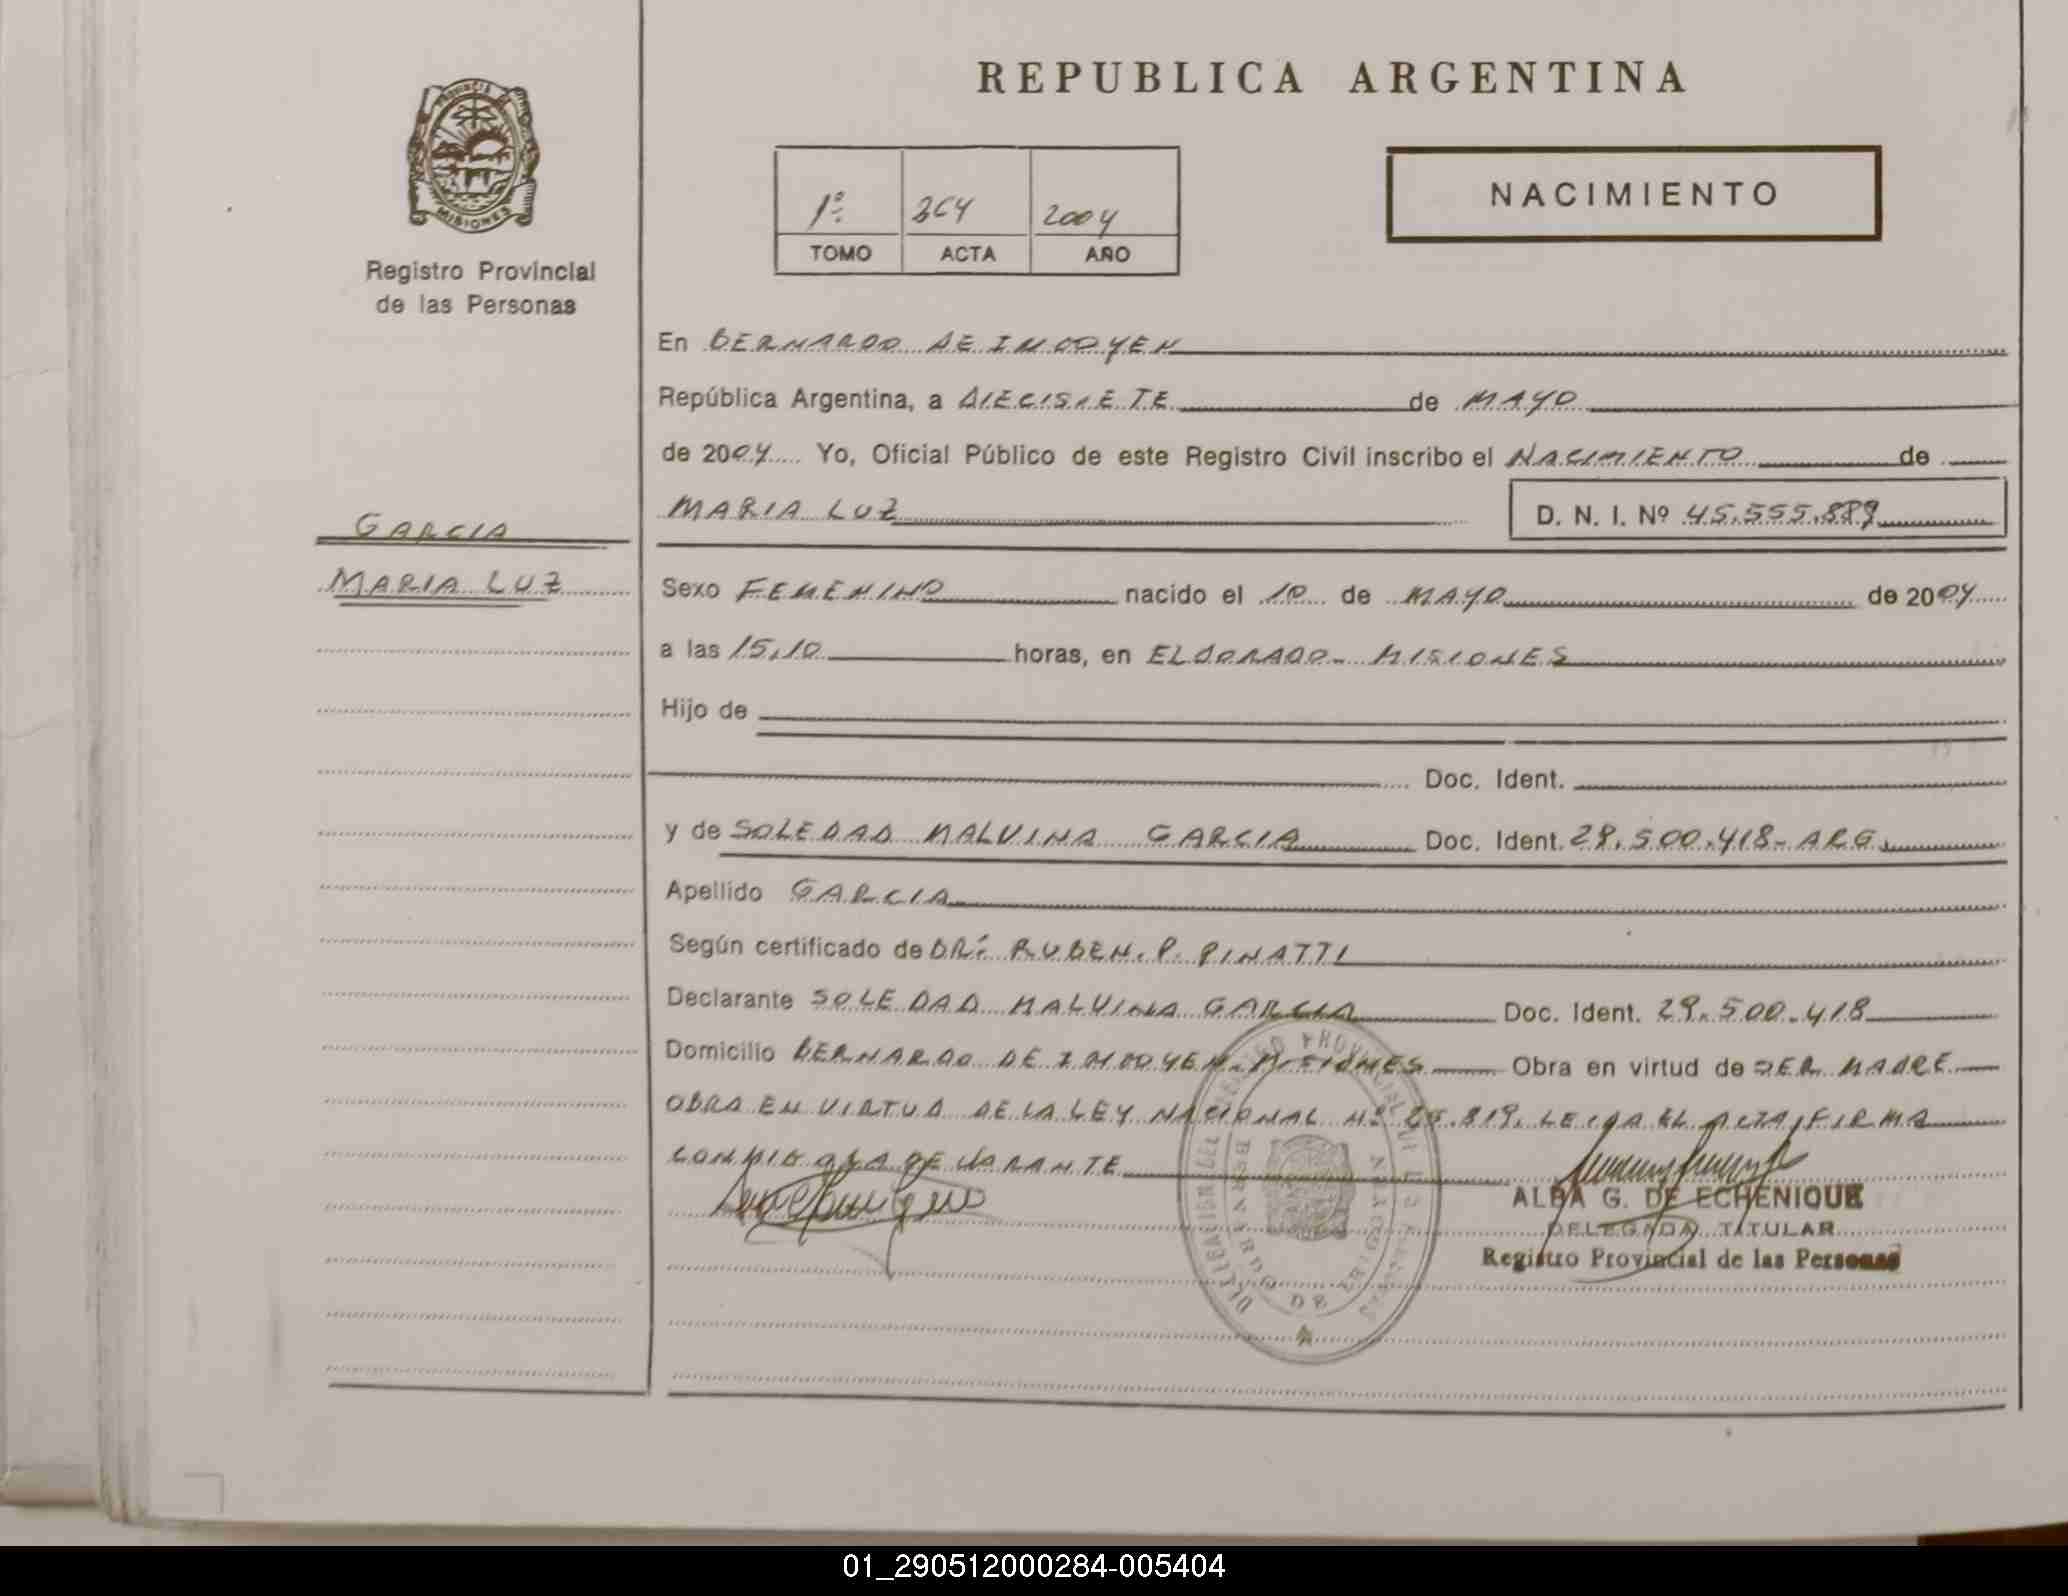 REPUBLICA ARGENTINA
PROVINCIA DE
MISIONES
Registro Provincial
de las Personas
1º 364 2004
TOMO ACTA AÑO
NACIMIENTO
En BERNARDO DE IRIGOYEN
República Argentina, a DIECISIETE de MAYO
de 2004 Yo, Oficial Público de este Registro Civil inscribo el NACIMIENTO de
MARIA LUZ D. N. I. Nº 45.555.889
GARCIA
MARIA LUZ
Sexo FEMENINO nacido el 10 de MAYO de 2004
a las 15,10 horas, en ELDORADO - MISIONES
Hijo de
Doc. Ident.
y de SOLEDAD MALVINA GARCIA Doc. Ident. 29.500.418 - ARG.
Apellido GARCIA
Según certificado de DR: RUBEN. P. PINATTI
Declarante SOLEDAD MALVINA GARCIA Doc. Ident. 29.500.418
Domicilio BERNARDO DE IRIGOYEN - MISIONES Obra en virtud de SER MADRE
OBRA EN VIRTUD DE LA LEY NACIONAL Nº 25.819. LEIDA EL ACTA, FIRMA
CONMIGO LA DECLARANTE
ALBA G. DE ECHENIQUE
DELEGADA TITULAR
Registro Provincial de las Personas
DELEGACION DEL REGISTRO PROVINCIAL DE LAS PERSONAS
BERNARDO DE IRIGOYEN
01_290512000284-005404